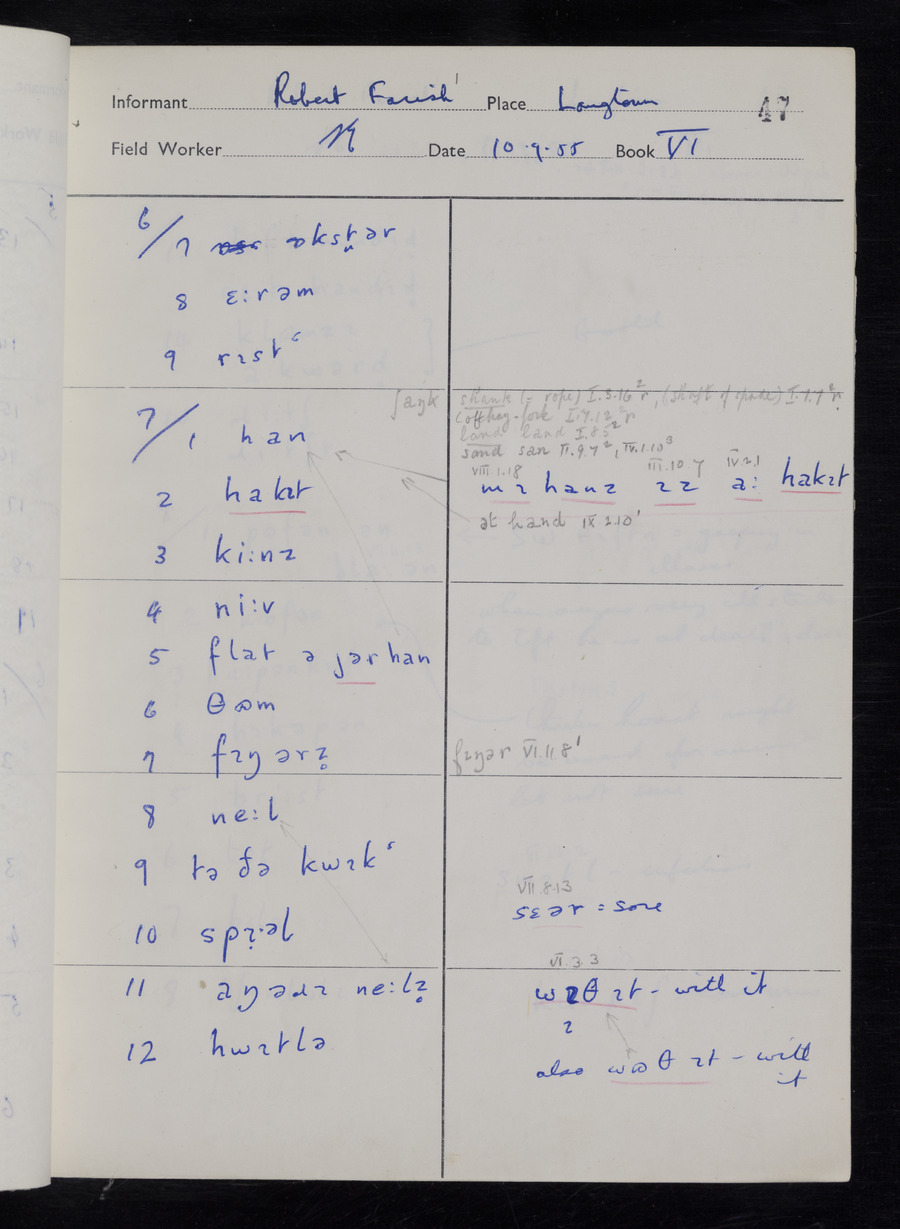 Informant Robert Farish¹ Place Longtown 47
Field Worker Date 10.9.55 Book VI
6/7 ɒkst̪ər
8 ɛ:rəm
9 rɪst
ʃaŋk shank (– rope) I.3.16² r, (shaft of spade) I.7.7² r.
hay-fork I.7.12² r
7/1 han land land I.8.5²
sand san II.9.7², IV.1.10³
VIII.1.18 III.10.7 IV.2.1
2 hakɪt mɪ hanz ɪz a: hakɪt
at hand IX 2.10¹
3 ki:nz
4 ni:v
5 flat ə jər han
6 θɷm
7 fɪŋərz̥ fɪŋər VI.11.8¹
8 ne:l
9 tə ðə kwɪk
VII.8.13
sɛər = sore
10 spɪ·əl
VI.3.3
11 ne:lz̥ wɪθ ɪt – with it
ɪ
12 hwɪtlə
also wɷθ ɪt – with
it